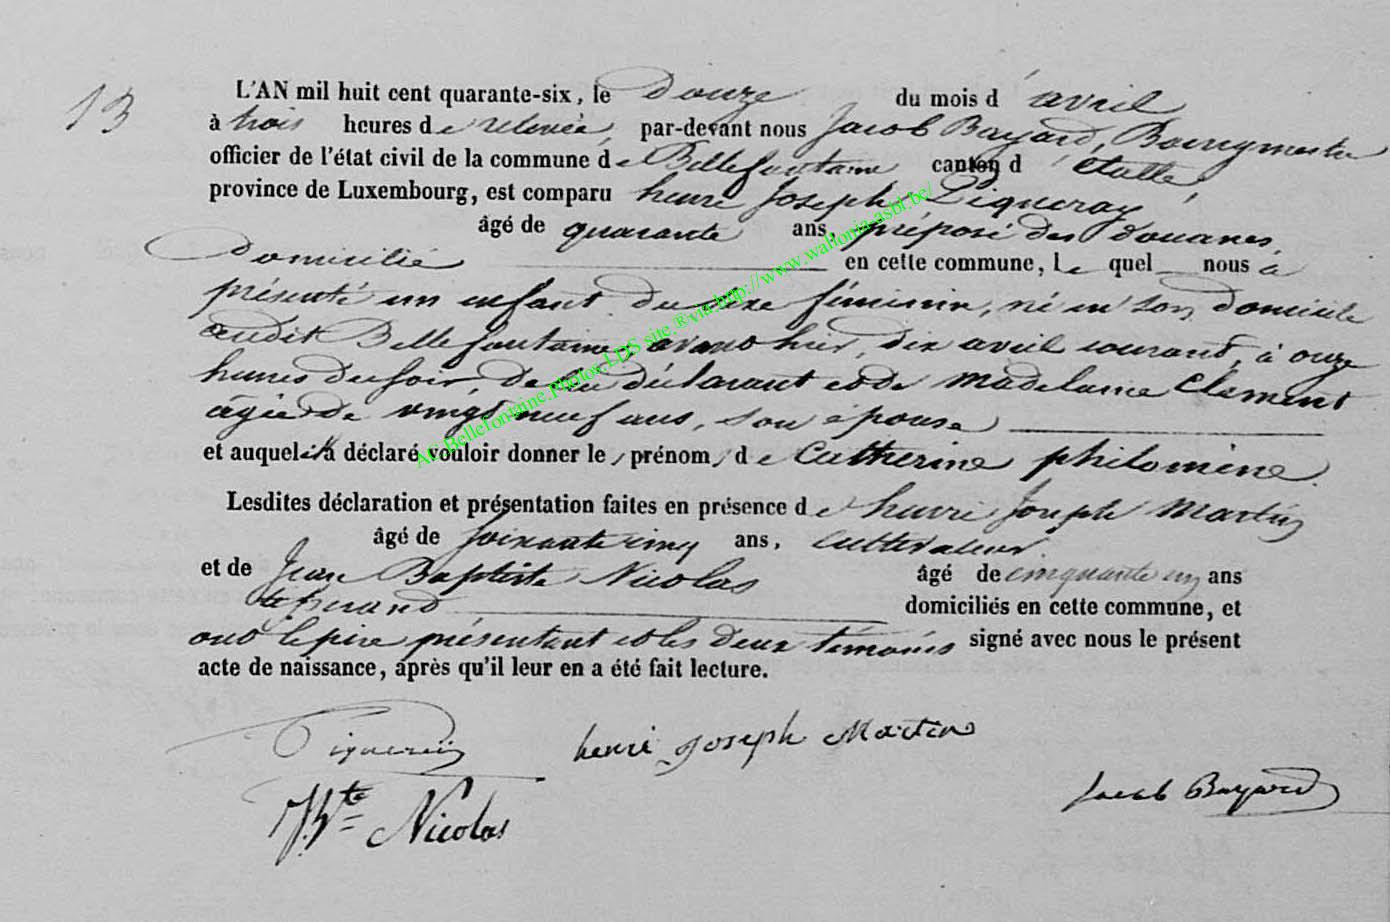 13
L'AN mil huit cent quarante-six, le Douze du mois d'avril
à trois heures de relevée, par-devant nous Jacob Bayard, Bourgmestre
officier de l'état civil de la commune de Bellefontaine canton d'étalle
province de Luxembourg, est comparu henri Joseph Piqueray
âgé de quarante ans, préposé des douanes,
Domicilié en cette commune, lequel nous a
présenté un enfant du sexe féminin, né en son domicile
audit Bellefontaine, avant hier, dix avril courant, à onze
heures du soir, de lui déclarant et de Madelaine Clement
âgée de vingt neuf ans, son épouse
et auquel il a déclaré vouloir donner le prénom de Catherine philomène.
Lesdites déclaration et présentation faites en présence de henri Joseph Martin
âgé de soixante cinq ans, cultivateur.
et de Jean Baptiste Nicolas âgé de cinquante un ans
domiciliés en cette commune, et
ont le père présentant et les deux témoins signé avec nous le présent
acte de naissance, après qu'il leur en a été fait lecture.
henri Joseph Martin
Jacob Bayard
Nicolas
AC Bellefontaine.Photos LDS site ®via http://www.wallonia-asbl.be/